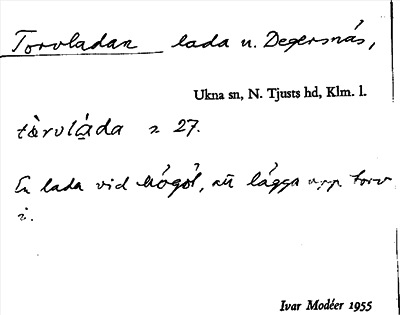 Torvladan lada n. Degersnäs,
Ukna sn, N. Tjusts hd, Klm. l.
tòrvláda 2 27.
En lada vid Högöl, att lägga upp torv
i.
Ivar Modéer 1955